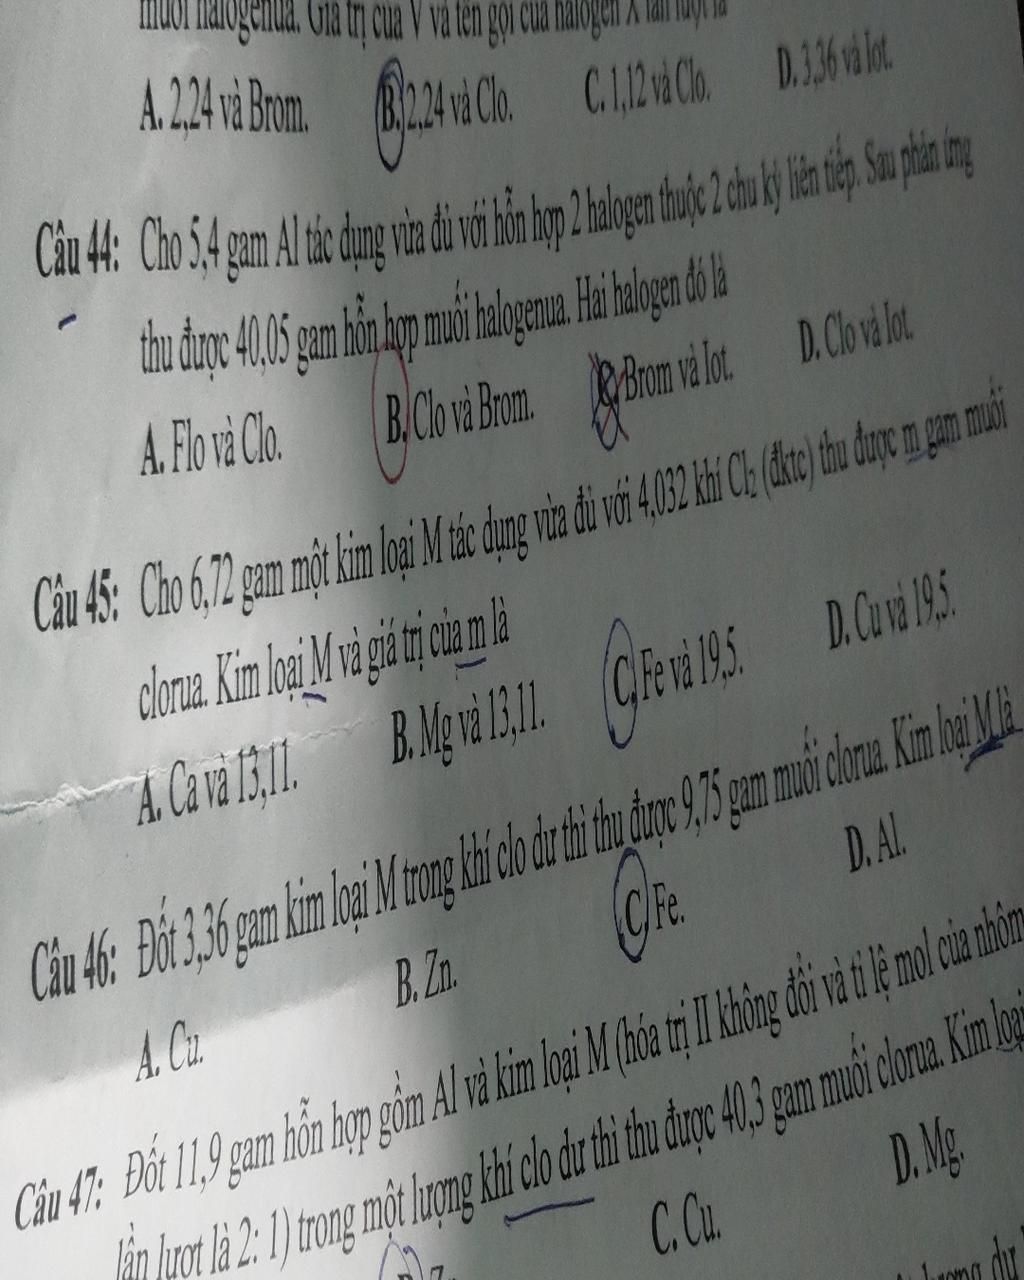 muối halogenua. Giá trị của V và tên gọi của halogen X lần lượt là
A. 2,24 và Brom. B. 2,24 và Clo. C. 1,12 và Clo. D. 3,36 và Iot.
Câu 44: Cho 5,4 gam Al tác dụng vừa đủ với hỗn hợp 2 halogen thuộc 2 chu kỳ liên tiếp. Sau phản ứng
thu được 40,05 gam hỗn hợp muối halogenua. Hai halogen đó là
A. Flo và Clo. B. Clo và Brom. C. Brom và Iot. D. Clo và Iot.
Câu 45: Cho 6,72 gam một kim loại M tác dụng vừa đủ với 4,032 khí Cl₂ (đktc) thu được m gam muối
clorua. Kim loại M và giá trị của m là
A. Ca và 13,11. B. Mg và 13,11. C. Fe và 19,5. D. Cu và 19,5.
Câu 46: Đốt 3,36 gam kim loại M trong khí clo dư thì thu được 9,75 gam muối clorua. Kim loại M là
A. Cu. B. Zn. C. Fe. D. Al.
Câu 47: Đốt 11,9 gam hỗn hợp gồm Al và kim loại M (hóa trị II không đổi và tỉ lệ mol của nhôm
lần lượt là 2: 1) trong một lượng khí clo dư thì thu được 40,3 gam muối clorua. Kim loại
C. Cu. D. Mg.